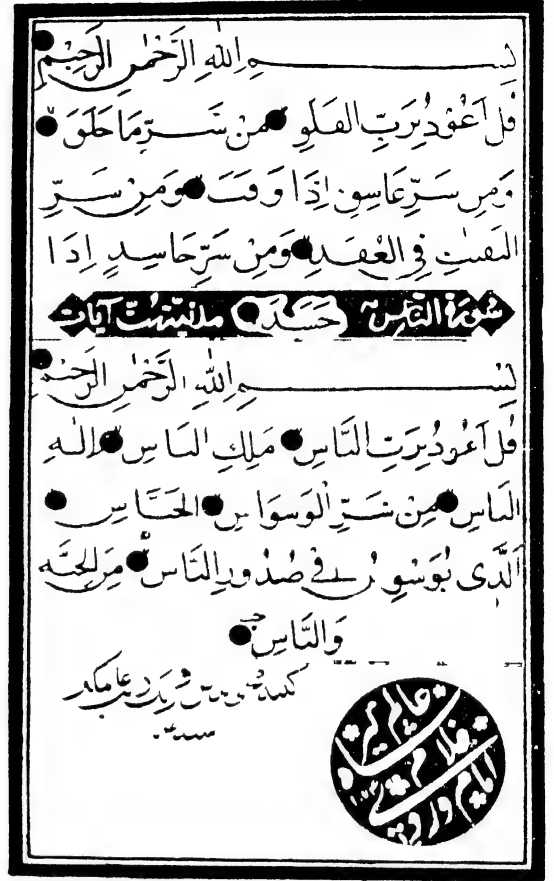 بِسْمِ اللهِ الرَّحْمٰنِ الرَّحِيْمِ
قُلْ اَعُوْذُ بِرَبِّ الْفَلَقِ مِنْ شَرِّ مَا خَلَقَ
وَمِنْ شَرِّ غَاسِقٍ اِذَا وَقَبَ وَمِنْ شَرِّ
النَّفّٰثٰتِ فِي الْعُقَدِ وَمِنْ شَرِّ حَاسِدٍ اِذَا
سُورَةُ النَّاسِ حَسَدَ مدنية ست آيات
بِسْمِ اللهِ الرَّحْمٰنِ الرَّحِيْمِ
قُلْ اَعُوْذُ بِرَبِّ النَّاسِ مَلِكِ النَّاسِ اِلٰهِ
النَّاسِ مِنْ شَرِّ الْوَسْوَاسِ الْخَنَّاسِ
الَّذِى يُوَسْوِسُ فِي صُدُورِ النَّاسِ مِنَ الْجِنَّةِ
وَالنَّاسِ
عالم گیر
شاه
غلام
امام وردی